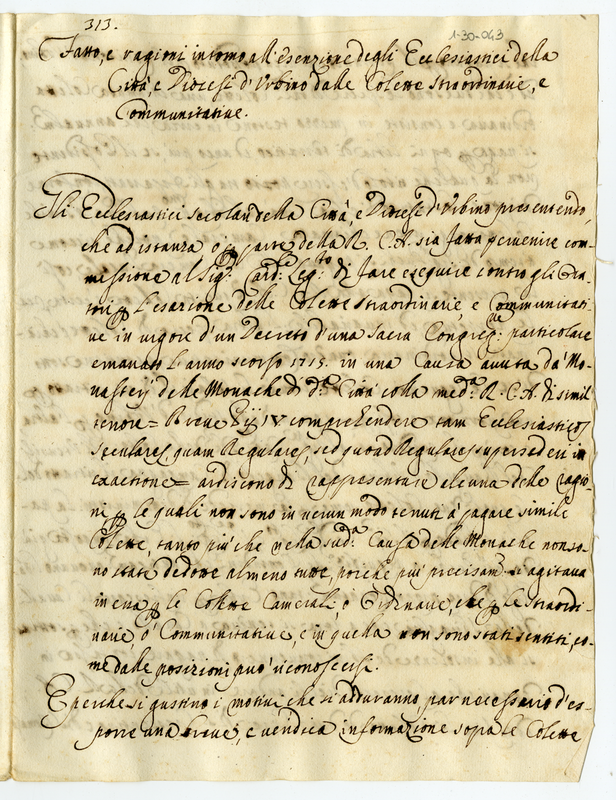 313.
1-30-043
Fatto, e ragioni intorno all'esenzione degli Ecclesiastici della
Città, e Diocesi d'Urbino dalle Colette straordinarie, e
Communitative.
Gli Ecclesiastici secolari della Città, e Diocesi d'Urbino presentendo,
che ad istanza o parte della R. C. A. sia fatta pervenire com-
missione al Sigr. Card. Legto di fare eseguire contro gli Ora-
tori l'esazione delle Colette straordinarie, e Communitati-
ve in vigore d'un Decreto d'una Sacra Congregne: particolare
emanato l'anno scorso 1715. in una Causa avuta da' Mo-
nasterj delle Monache di da. Città colla meda. R. C. A. di simil
tenore = Breve Pij IV comprehendere tam Ecclesiasticos
seculares, quam Regulares, sed quoad Regulares supersederi in
exactione = ardiscono di rappresentare alcuna delle ragio-
ni p le quali non sono in verun modo tenuti à pagare simile
Colette, tanto più che nella suda. Causa delle Monache non so-
no state dedotte almeno tutte, poiche più precisamte. si agitava
in essa p le Colette Camerali, ò Ordinarie, che p le straordi-
narie, ò Communitative, e in quella non sono stati sentiti, co-
me dalle posizioni può riconoscersi.
E perche si gustino i motivi che si adduranno, par necessario d'es-
porre una breve, e veridica informazione sopra le Colette